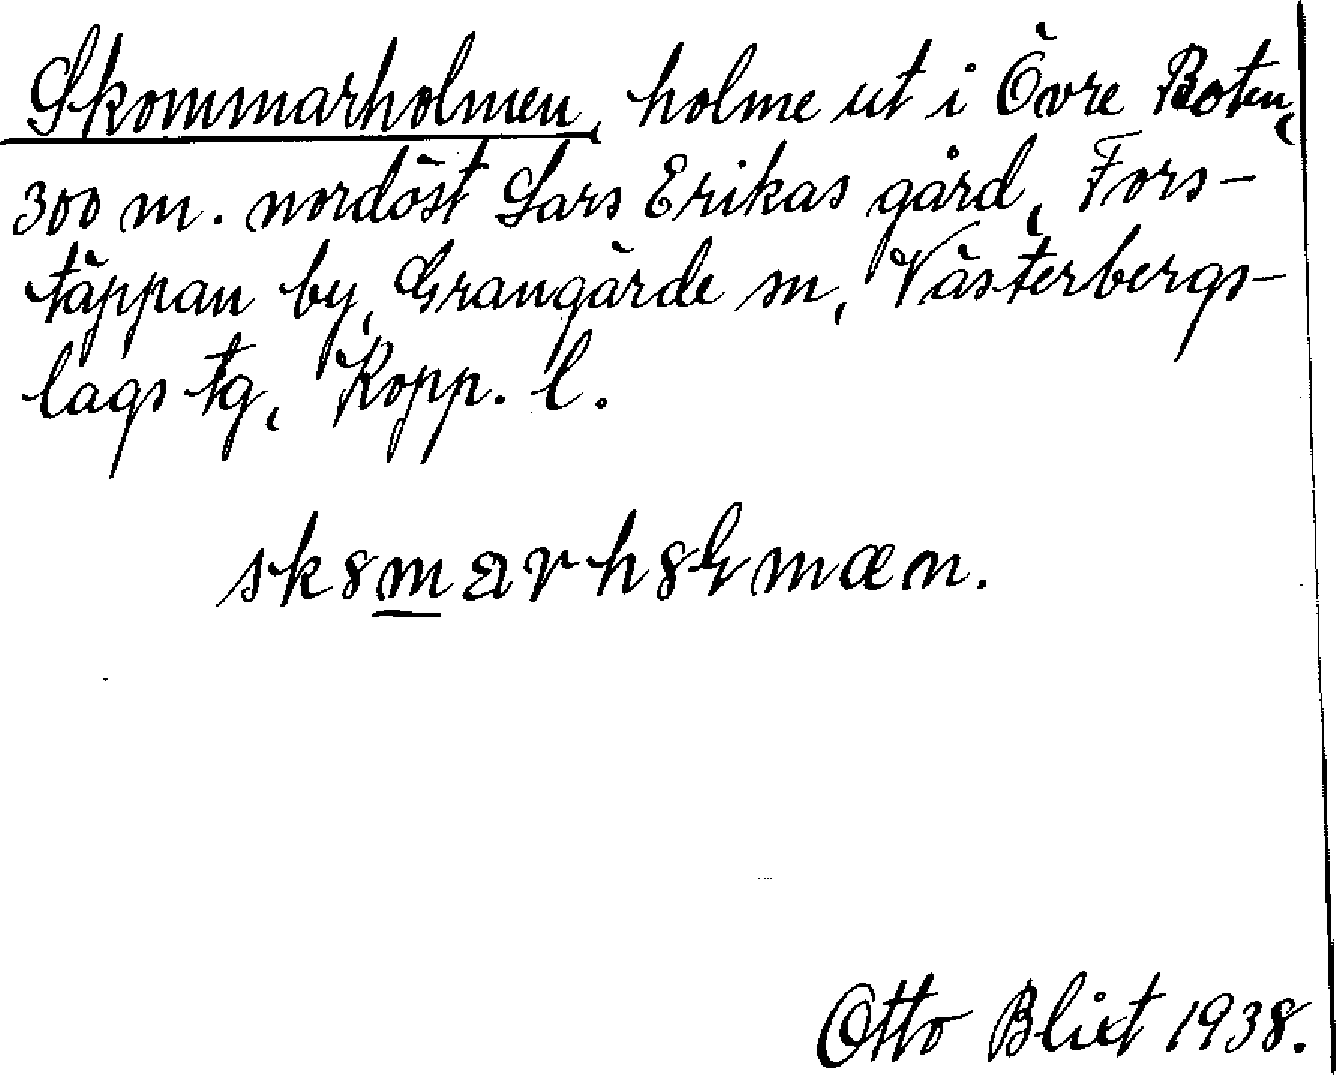 Skommarholmen, holme ut i Övre Boten,
300 m. nordöst Lars Erikas gård, Fors-
täppan by, Grangärde sn, Västerbergs-
lags tg, Kopp. l.
sk8marh8ɬmæn.
Otto Blixt 1938.